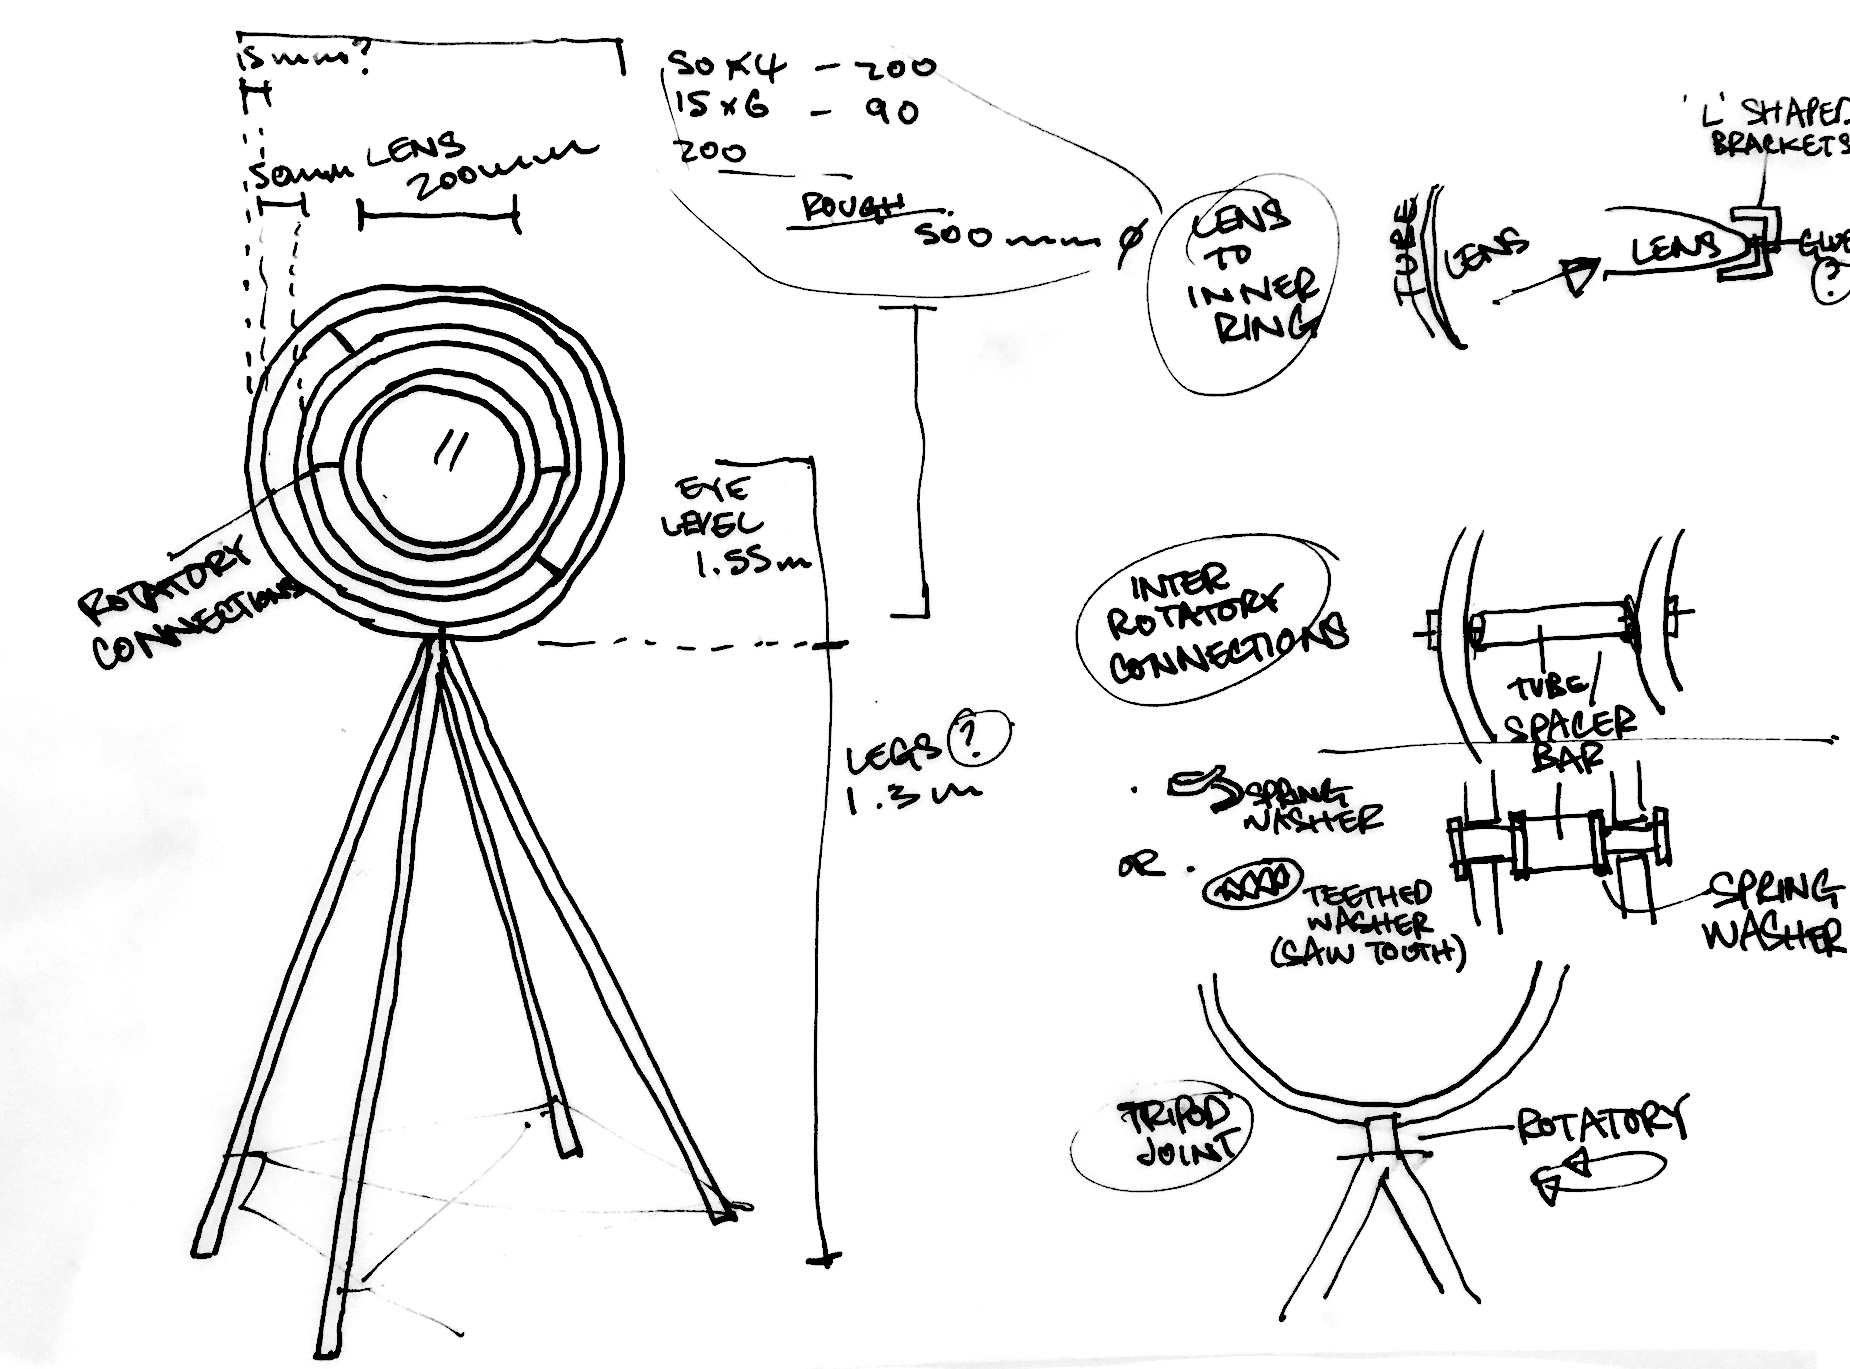 15mm?
50mm
LENS
200mm
50 x 4 - 200
15 x 6 - 90
200
ROUGH
500mm ø
ROTATORY
CONNECTIONS
EYE
LEVEL
1.55m
LEGS ?
1.3m
LENS
TO
INNER
RING
TUBE
LENS
LENS
'L' SHAPED
BRACKETS
GLUE
?
INTER
ROTATORY
CONNECTIONS
TUBE/
SPACER
BAR
SPRING
WASHER
OR
TEETHED
WASHER
(SAW TOOTH)
SPRING
WASHER
TRIPOD
JOINT
ROTATORY